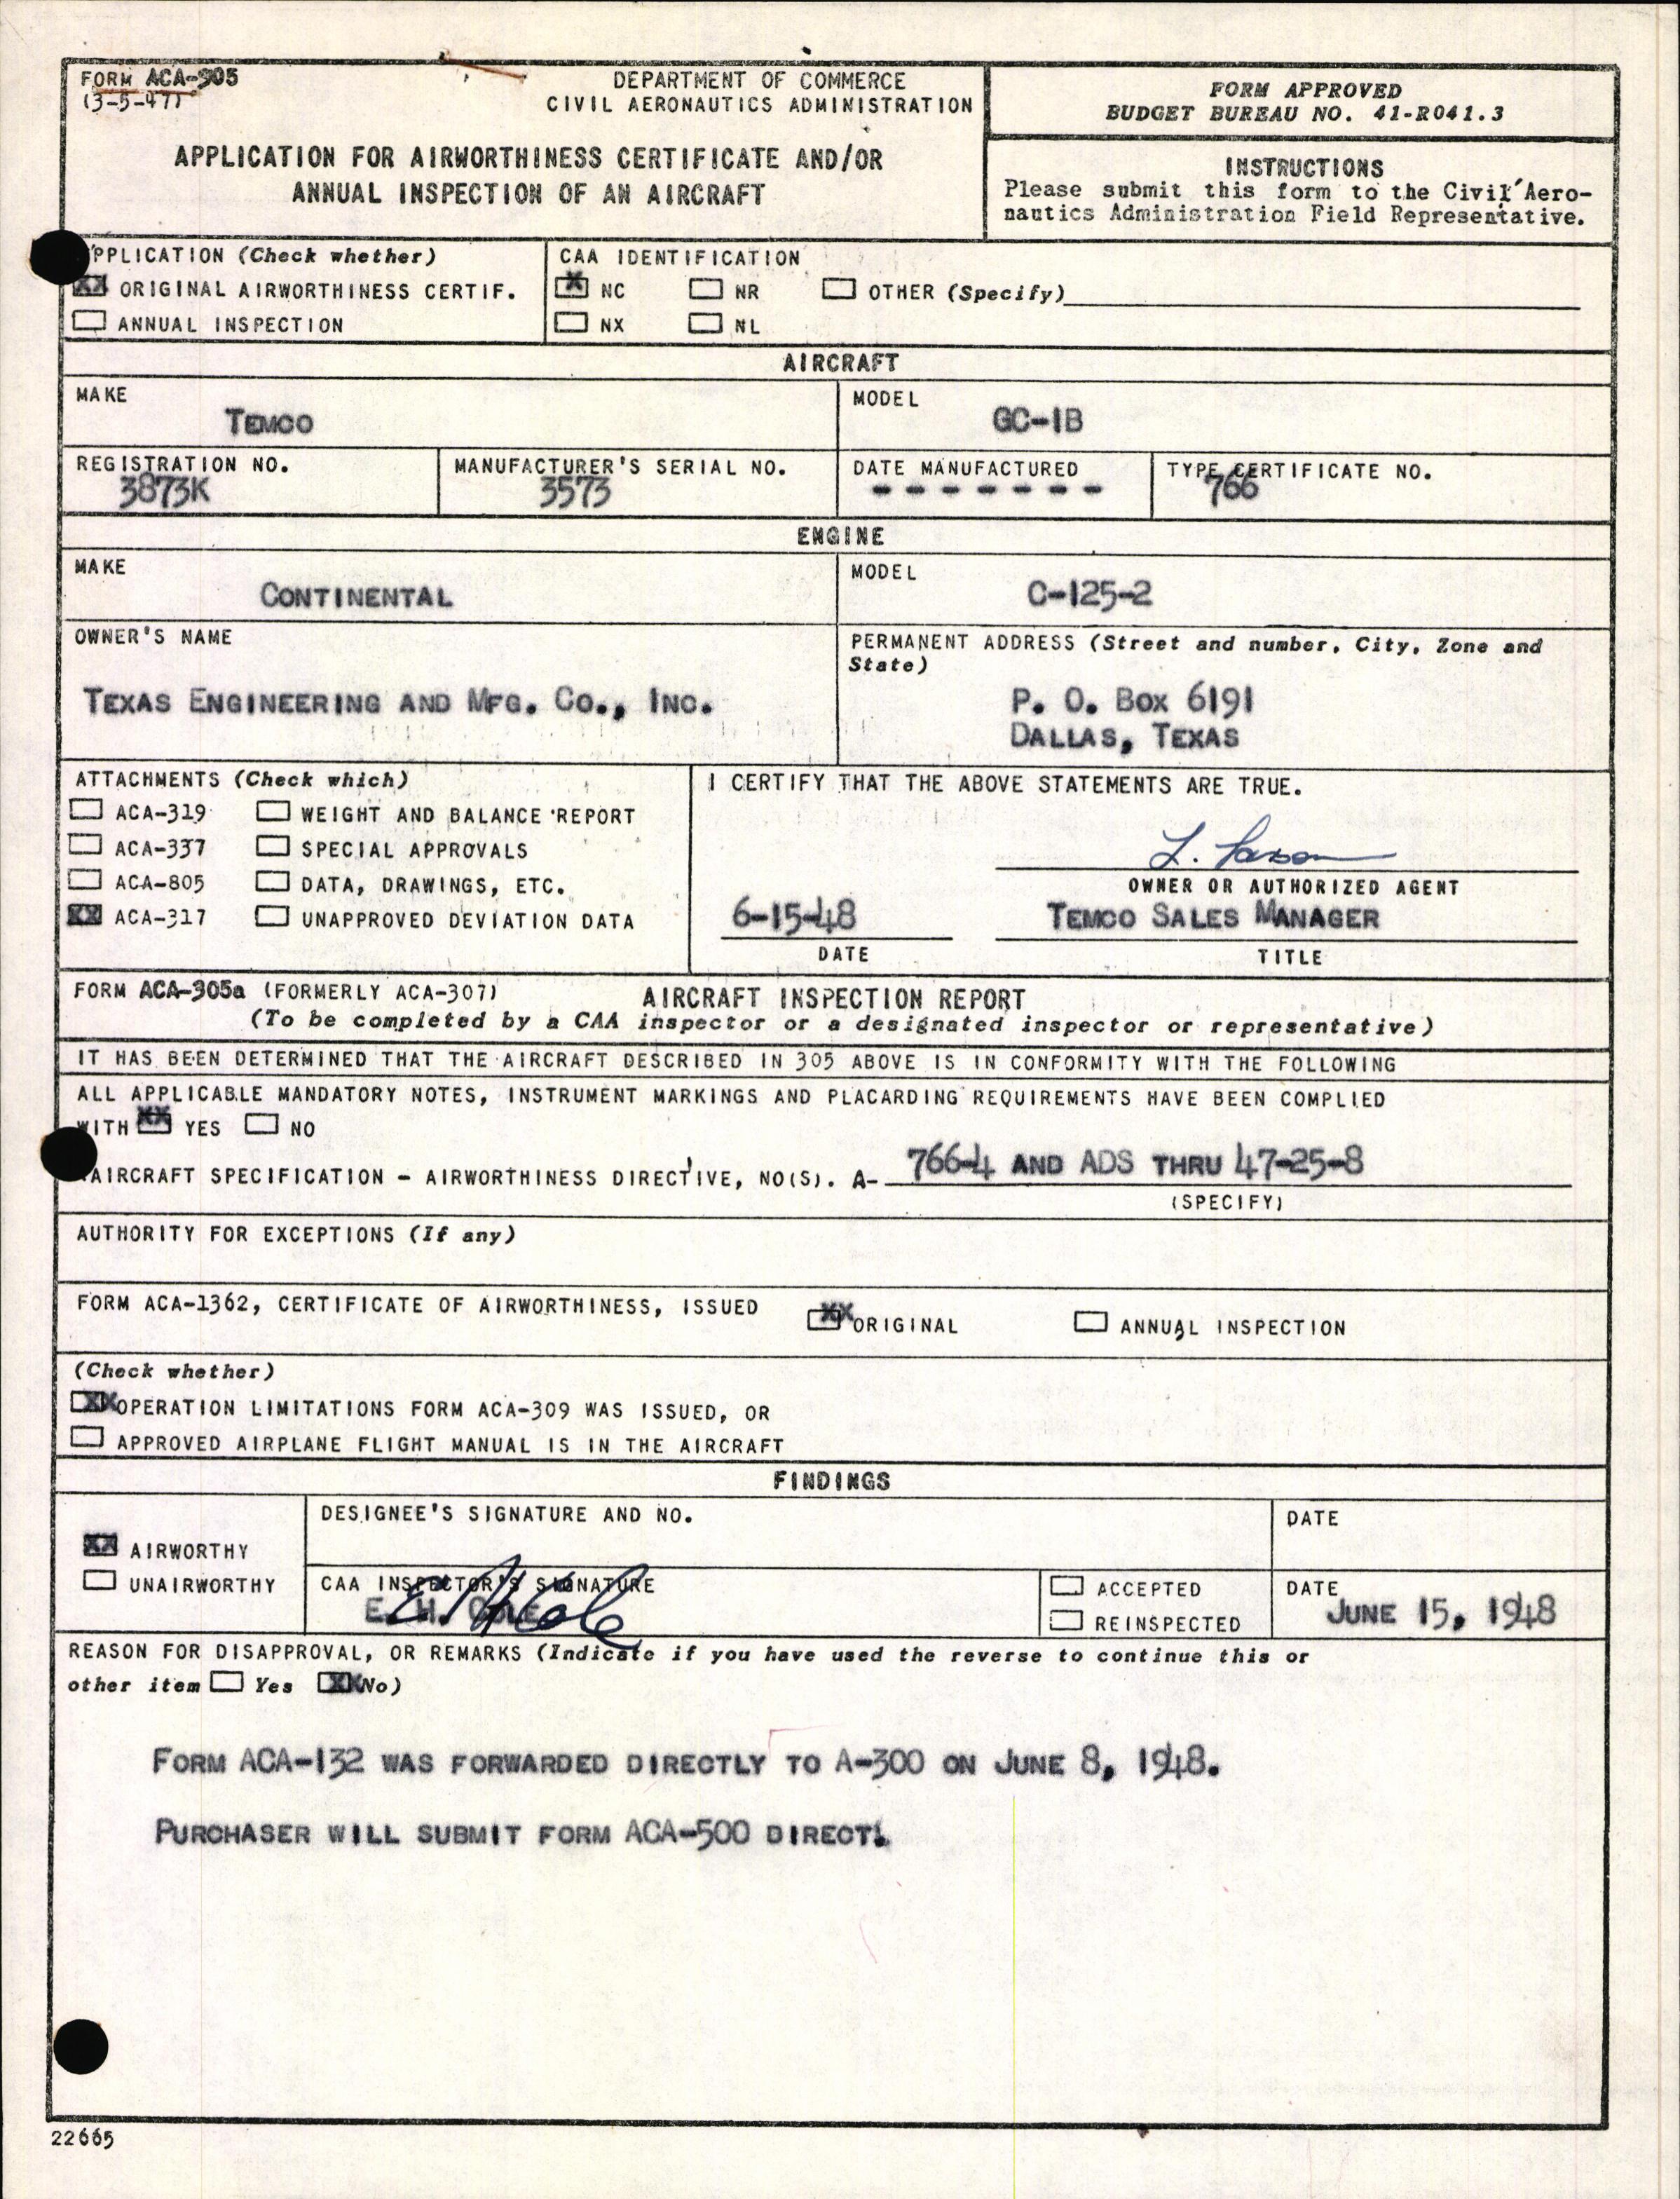 FORM ACA-305
(3-5-47)
DEPARTMENT OF COMMERCE
CIVIL AERONAUTICS ADMINISTRATION
APPLICATION FOR AIRWORTHINESS CERTIFICATE AND/OR
ANNUAL INSPECTION OF AN AIRCRAFT
FORM APPROVED
BUDGET BUREAU NO. 41-R041.3
INSTRUCTIONS
Please submit this form to the Civil Aero-
nautics Administration Field Representative.
APPLICATION (Check whether)
XX ORIGINAL AIRWORTHINESS CERTIF.
ANNUAL INSPECTION
CAA IDENTIFICATION
X NC NR OTHER (Specify)
NX NL
AIRCRAFT
MAKE
TEMCO
MODEL
GC-1B
REGISTRATION NO.
3873K
MANUFACTURER'S SERIAL NO.
3573
DATE MANUFACTURED
- - - - - - -
TYPE CERTIFICATE NO.
766
ENGINE
MAKE
CONTINENTAL
MODEL
C-125-2
OWNER'S NAME
TEXAS ENGINEERING AND MFG. CO., INC.
PERMANENT ADDRESS (Street and number, City, Zone and
State)
P. O. BOX 6191
DALLAS, TEXAS
ATTACHMENTS (Check which)
ACA-319 WEIGHT AND BALANCE REPORT
ACA-337 SPECIAL APPROVALS
ACA-805 DATA, DRAWINGS, ETC.
XX ACA-317 UNAPPROVED DEVIATION DATA
I CERTIFY THAT THE ABOVE STATEMENTS ARE TRUE.
OWNER OR AUTHORIZED AGENT
6-15-48
DATE
TEMCO SALES MANAGER
TITLE
FORM ACA-305a (FORMERLY ACA-307)
AIRCRAFT INSPECTION REPORT
(To be completed by a CAA inspector or a designated inspector or representative)
IT HAS BEEN DETERMINED THAT THE AIRCRAFT DESCRIBED IN 305 ABOVE IS IN CONFORMITY WITH THE FOLLOWING
ALL APPLICABLE MANDATORY NOTES, INSTRUMENT MARKINGS AND PLACARDING REQUIREMENTS HAVE BEEN COMPLIED
WITH XX YES NO
AIRCRAFT SPECIFICATION - AIRWORTHINESS DIRECTIVE, NO(S). A- 766-4 AND ADS THRU 47-25-8
(SPECIFY)
AUTHORITY FOR EXCEPTIONS (If any)
FORM ACA-1362, CERTIFICATE OF AIRWORTHINESS, ISSUED XX ORIGINAL ANNUAL INSPECTION
(Check whether)
XX OPERATION LIMITATIONS FORM ACA-309 WAS ISSUED, OR
APPROVED AIRPLANE FLIGHT MANUAL IS IN THE AIRCRAFT
FINDINGS
XX AIRWORTHY
UNAIRWORTHY
DESIGNEE'S SIGNATURE AND NO.
DATE
CAA INSPECTOR'S SIGNATURE
E. H. COLE
E H Cole
ACCEPTED
REINSPECTED
DATE
JUNE 15, 1948
REASON FOR DISAPPROVAL, OR REMARKS (Indicate if you have used the reverse to continue this or
other item Yes XX No)
FORM ACA-132 WAS FORWARDED DIRECTLY TO A-300 ON JUNE 8, 1948.
PURCHASER WILL SUBMIT FORM ACA-500 DIRECT.
22665